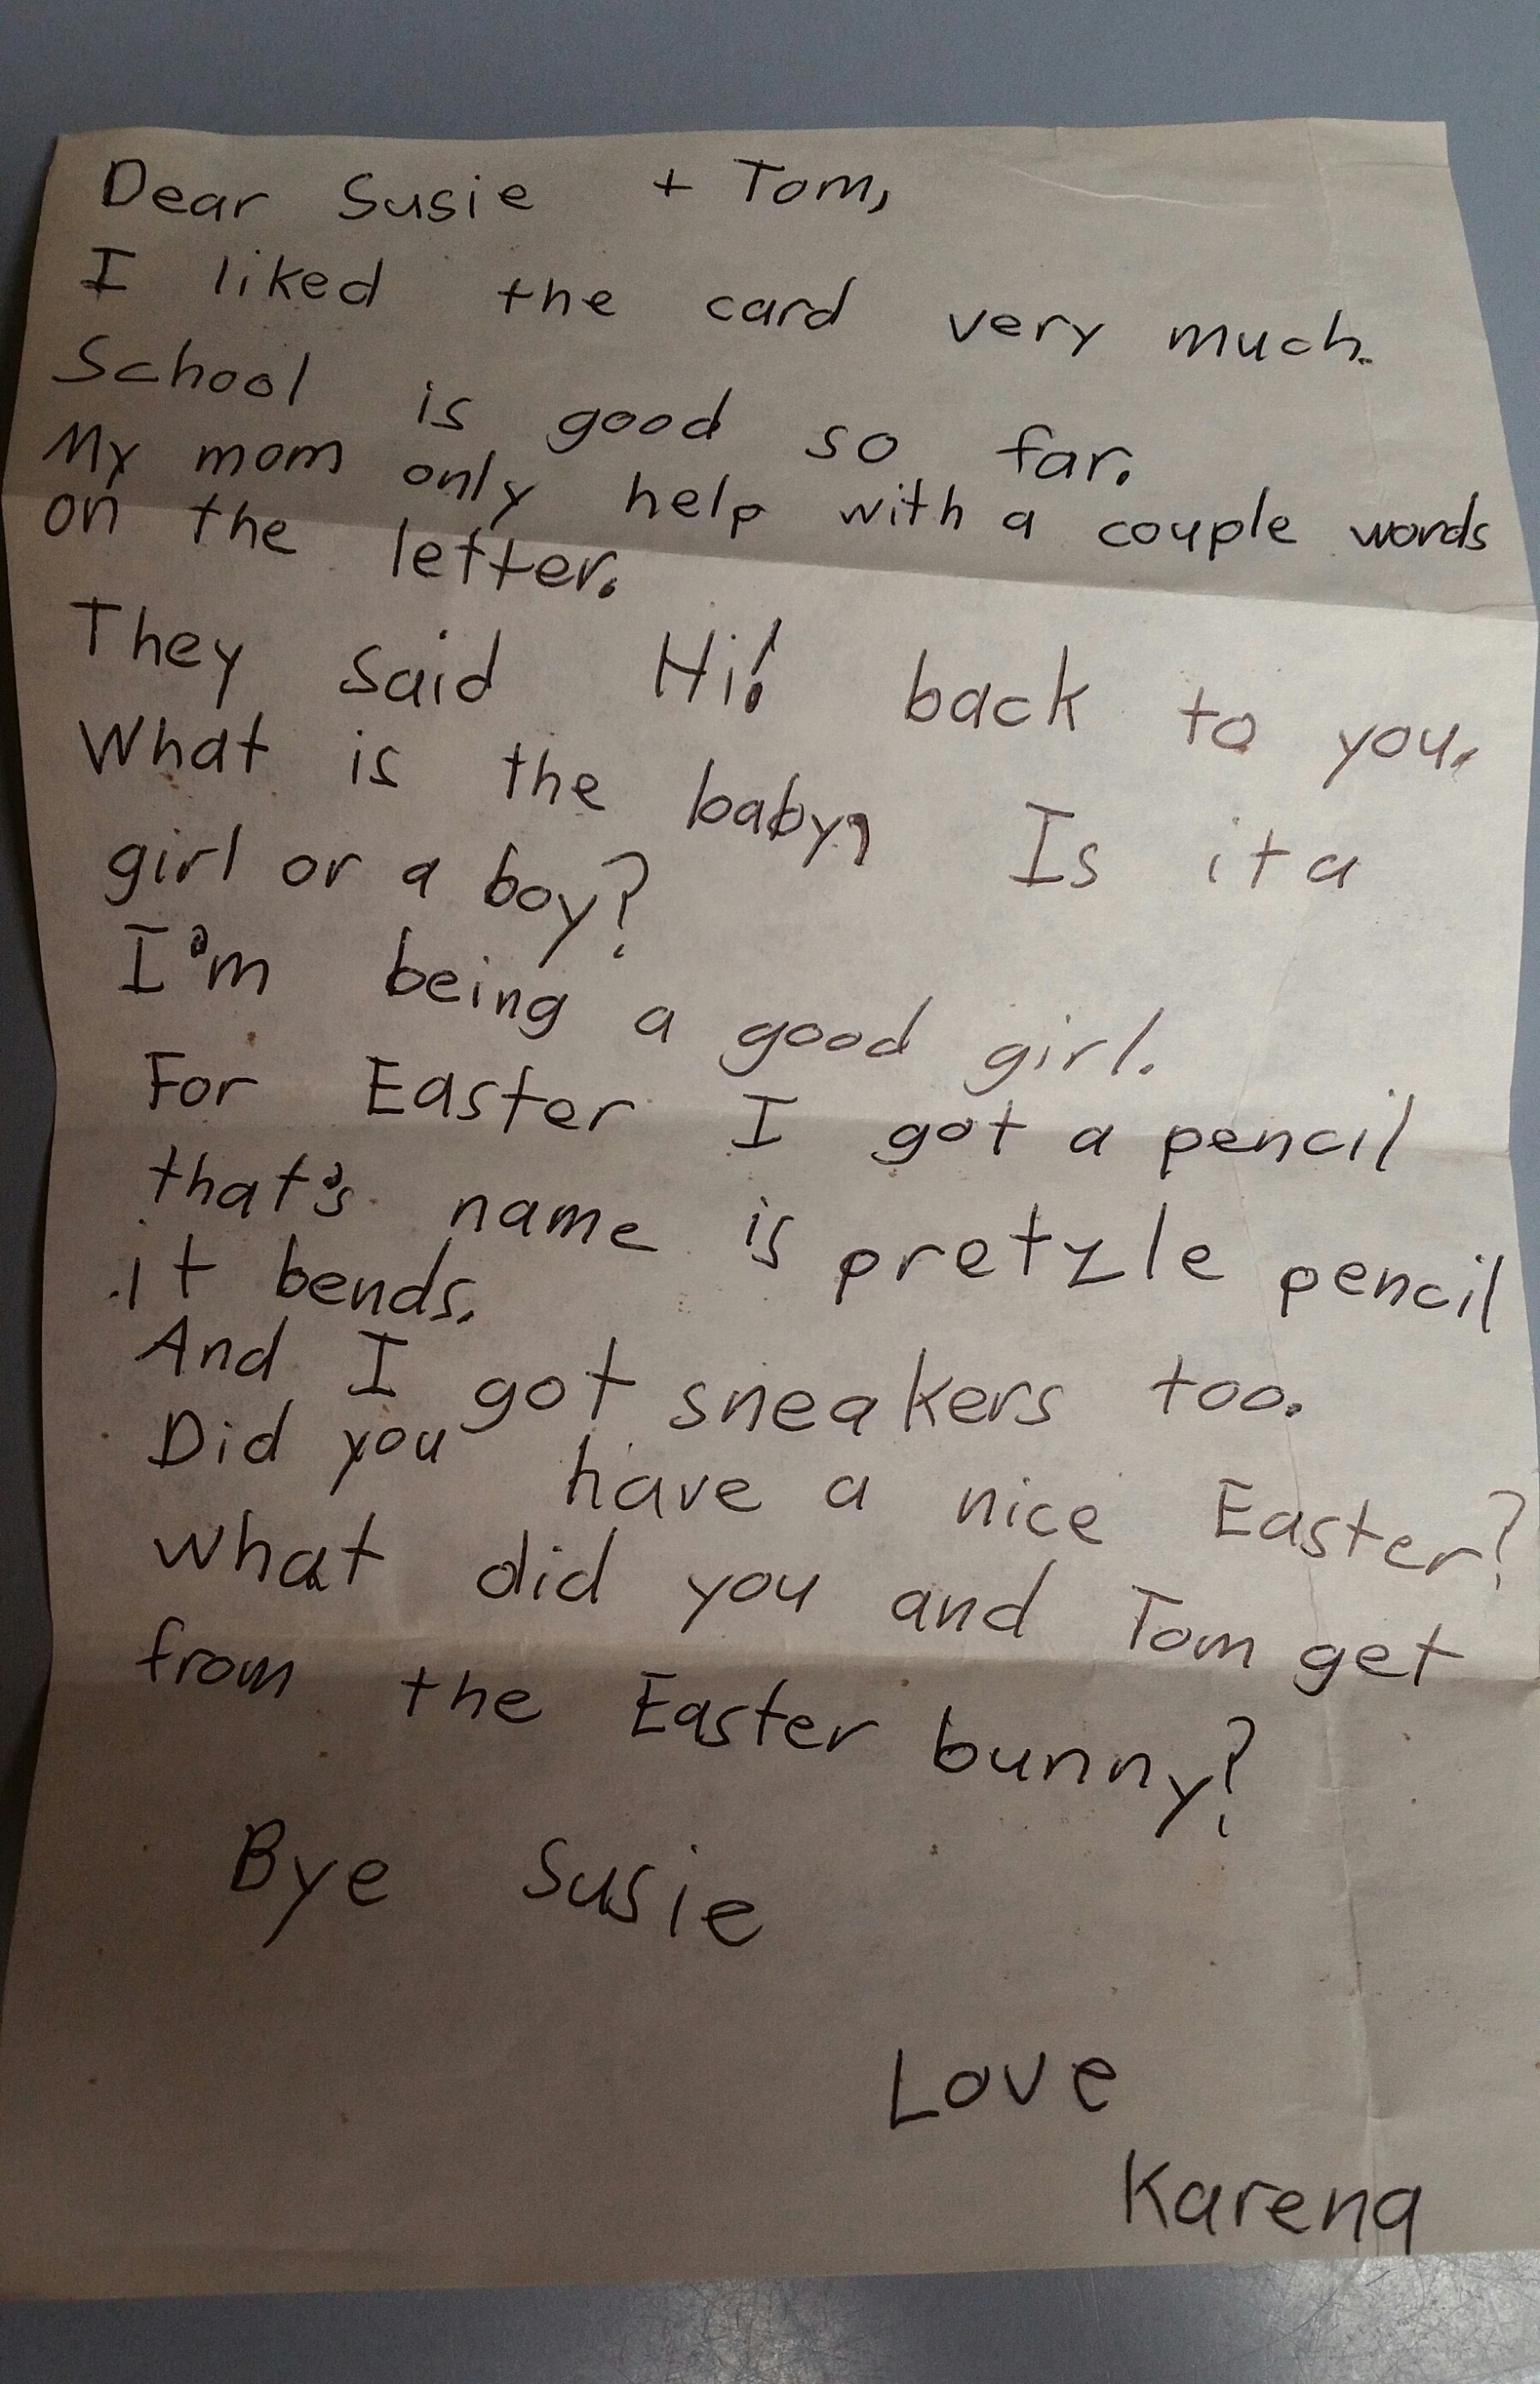 Dear Susie + Tom,
I liked the card very much.
School is good so far.
My mom only help with a couple words
on the letter.
They said Hi! back to you.
What is the baby, Is it a
girl or a boy?
I'm being a good girl.
For Easter I got a pencil
that's name is pretzle pencil
it bends.
And I got sneakers too.
Did you have a nice Easter?
what did you and Tom get
from the Easter bunny?
Bye Susie
Love
Karena